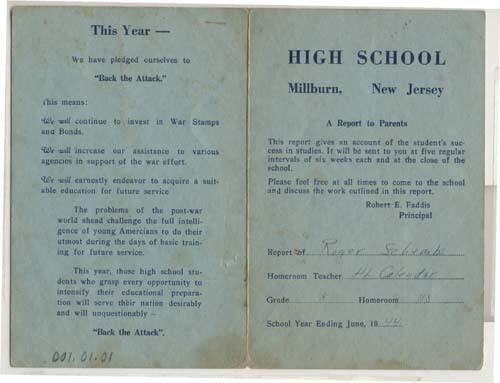 This Year —
We have pledged ourselves to
"Back the Attack."
This means:
We will continue to invest in War Stamps
and Bonds.
We will increase our assistance to various
agencies in support of the war effort.
We will earnestly endeavor to acquire a suit-
able education for future service
The problems of the post-war
world shead challenge the full intelli-
gence of young Amercians to do their
utmost during the days of basic train-
ing for future service.
This year, those high school stu-
dents who grasp every opportunity to
intensify their educational preparation
will serve their nation desirably
and will unquestionably –
"Back the Attack".
001.01.01
HIGH SCHOOL
Millburn, New Jersey
A Report to Parents
This report gives an account of the student's suc-
cess in studies. It will be sent to you at five regular
intervals of six weeks each and at the close of the
school.
Please feel free at all times to come to the school
and discuss the work outlined in this report.
Robert E. Faddis
Principal
Report of Roger
Homeroom Teacher Calendar
Grade 8 Homeroom
School Year Ending June, 1944